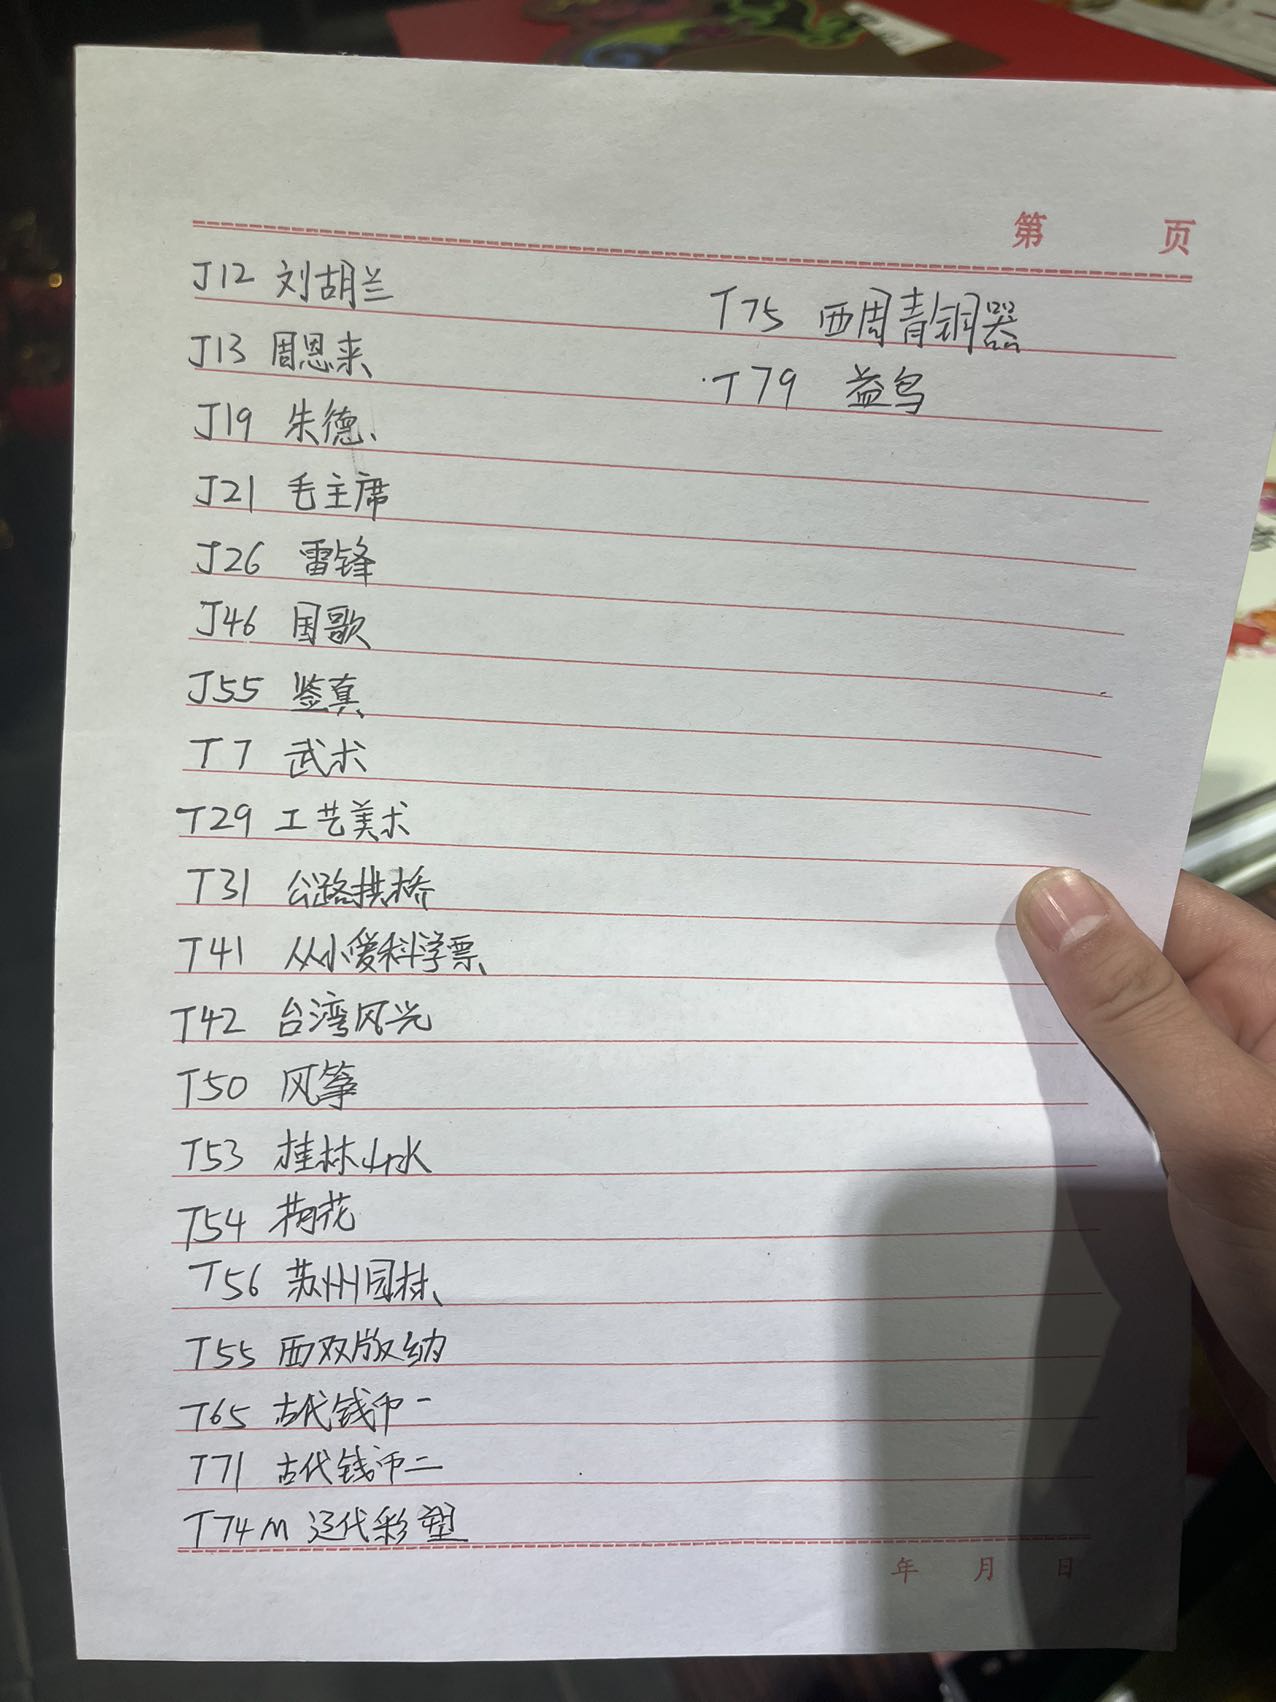 第 页
J12 刘胡兰
J13 周恩来
J19 朱德
J21 毛主席
J26 雷锋
J46 国歌
J55 鉴真
T7 武术
T29 工艺美术
T31 公路拱桥
T41 从小爱科学票
T42 台湾风光
T50 风筝
T53 桂林山水
T54 荷花
T56 苏州园林
T55 西双版纳
T65 古代钱币一
T71 古代钱币二
T74M 辽代彩塑
T75 西周青铜器
T79 益鸟
年 月 日